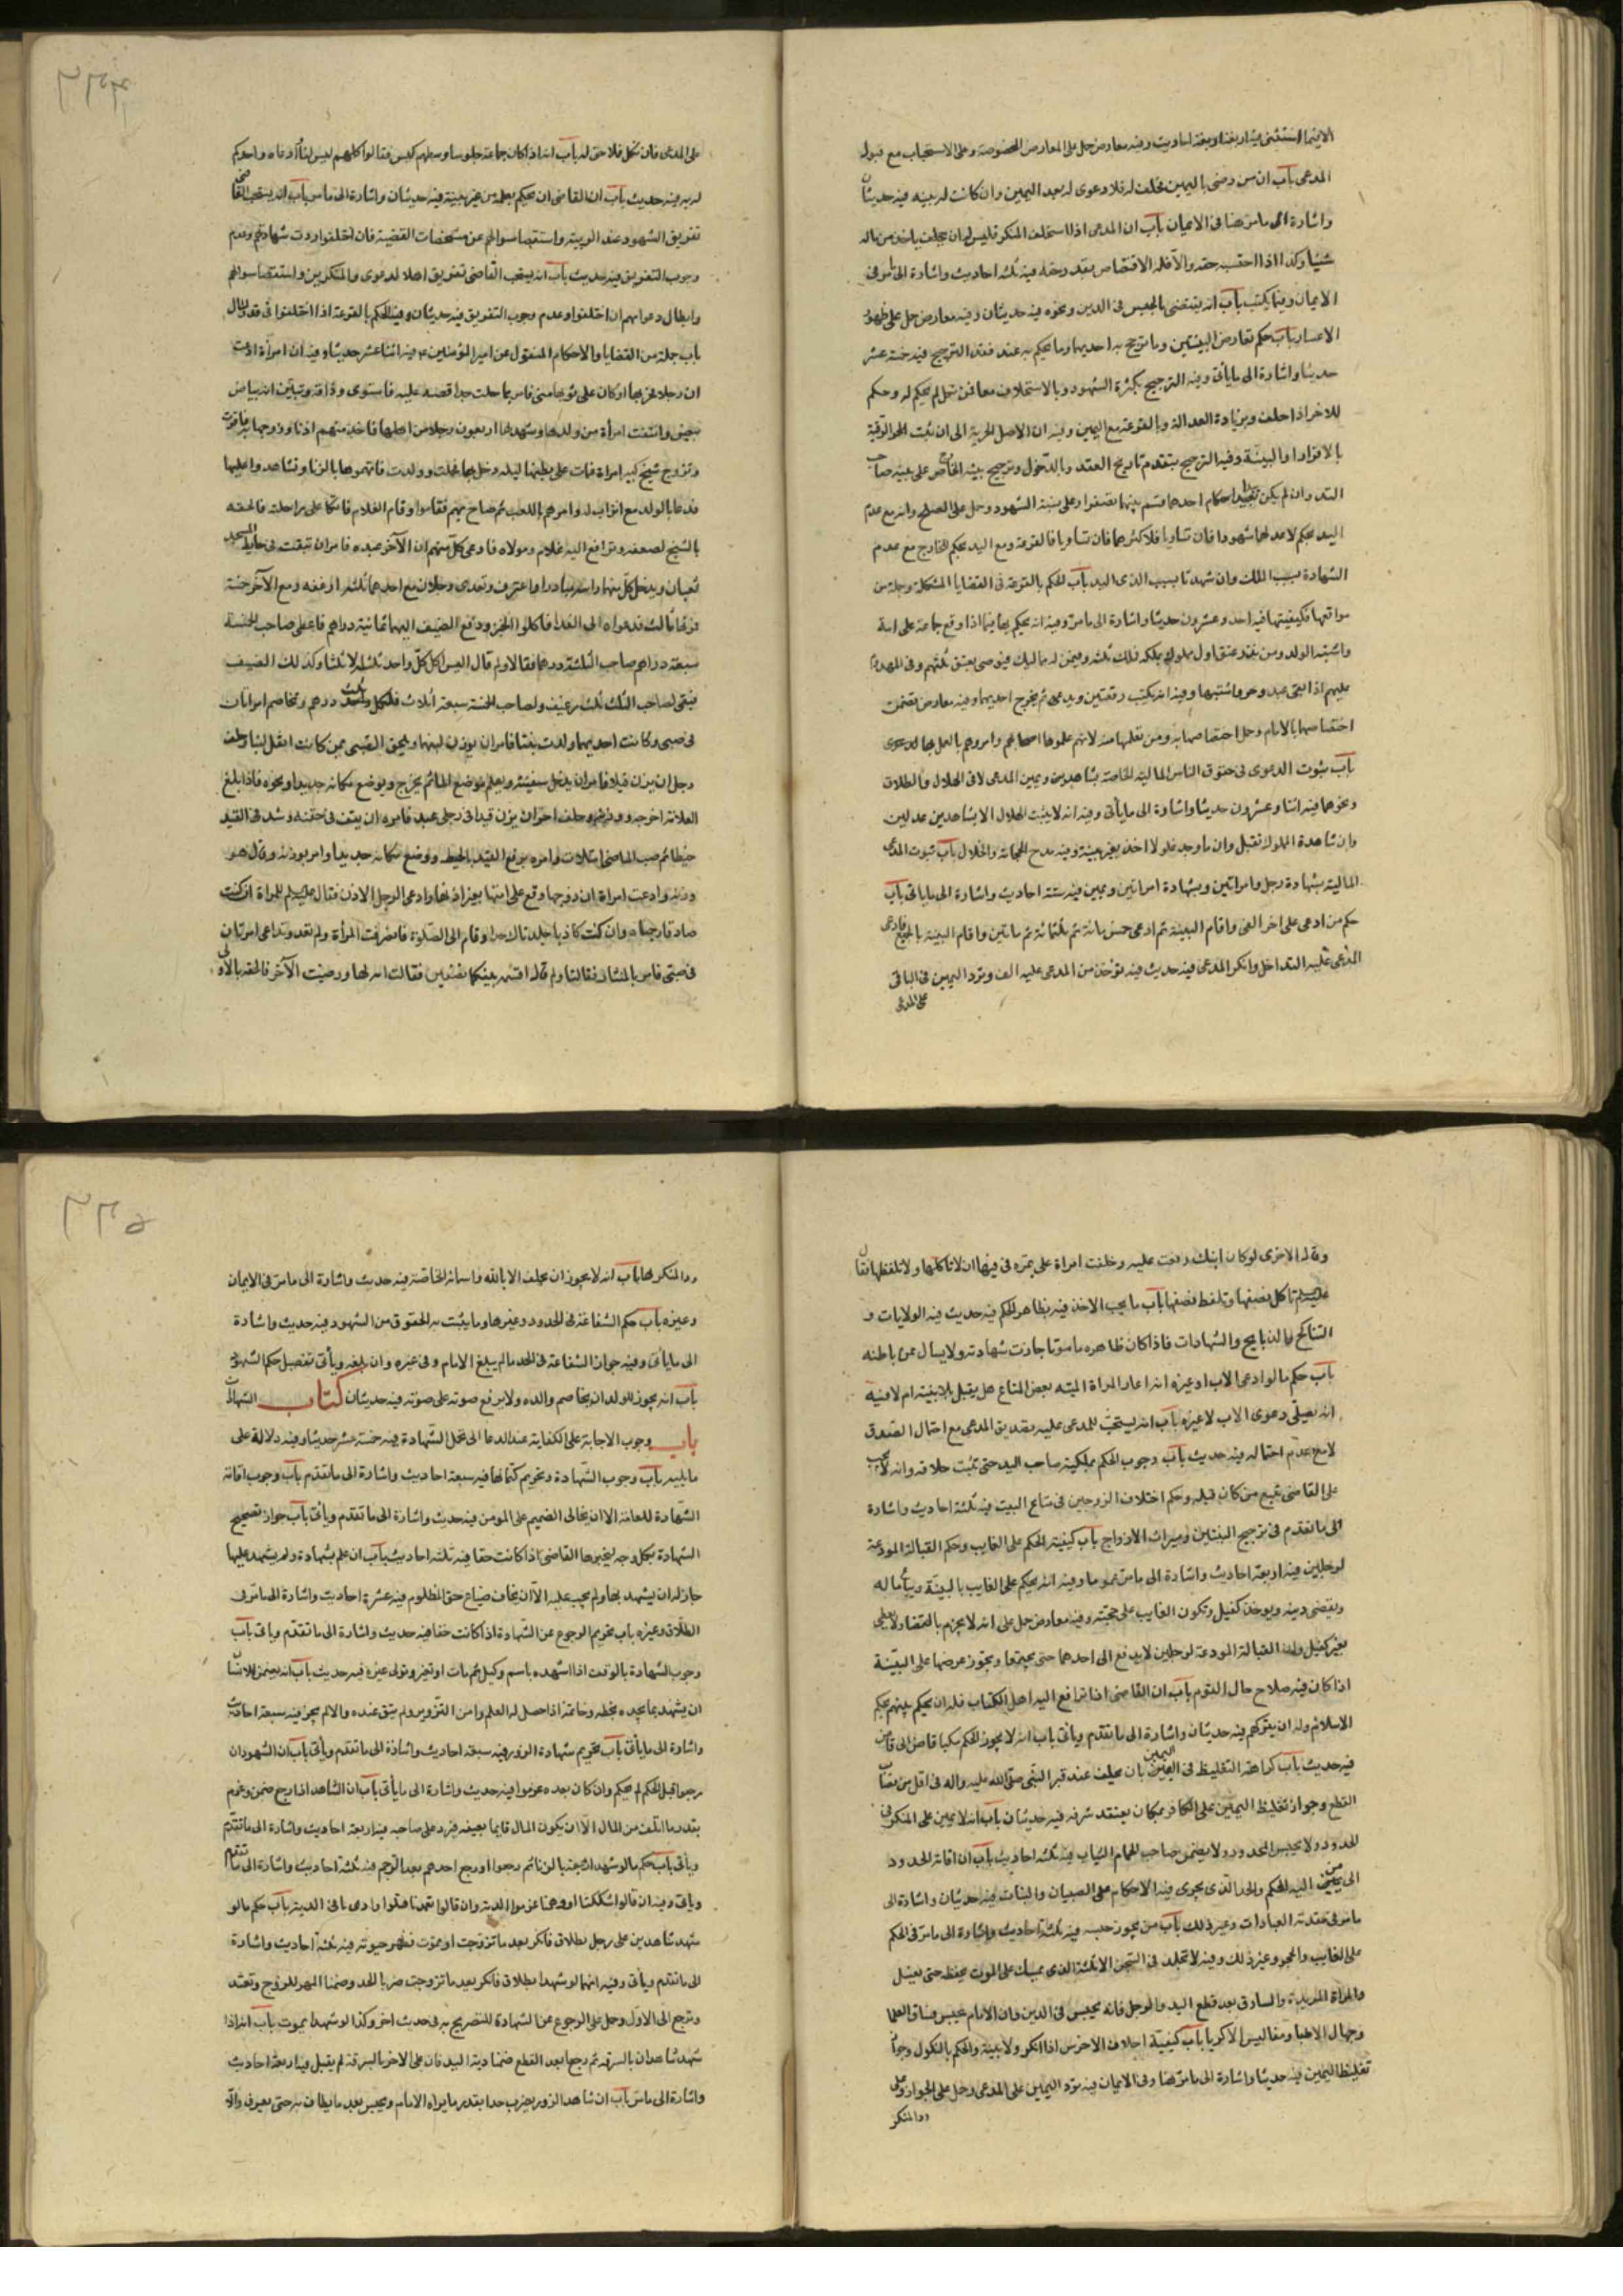 الا فيما استثنى فيه اربعة احاديث وفيه معارض حمل على المعارض المخصوصة وعلى الاستحباب مع قبول
المدعى باب ان من رضى باليمين فحلف له فلا دعوى له بعد اليمين وان كانت له بينة فيه حديثان
واشارة الى ما مر هنا وفى الايمان باب ان المدعى اذا استحلف المنكر فليس له ان يأخذ من ماله
شيئا وكذا اذا احتسب حقه والا فله الاقتصاص بقدر حقه فيه ثلثة احاديث واشارة الى ما مر فى
الايمان وفيما يكتسب باب انه يقضى بالحبس فى الدين ونحوه فيه حديثان وفيه معارض حمل على ظهور
الاعسار باب حكم تعارض البينتين وما ترجح به احديهما وما يحكم به عند فقد الترجيح فيه خمسة عشر
حديثا واشارة الى ما يأتى وفيه الترجيح بكثرة الشهود وبالاستحلاف معا فمن نكل لم يحكم له وحكم
للاخر اذا حلف وبزيادة العدالة وبالقرعة مع اليمين وفيه ان الاصل الحرية الى ان تثبت الرقية
بالاقرار او البينة وفيه الترجيح بتقدم تاريخ العقد وبالدخول وترجيح بينة الخارج على بينة صاحب
اليد وان لم يكن احدهما قسم بينهما نصفين او على نسبة الشهود وحمل على الصلح وانه مع عدم
اليد يحكم لاعدلهما شهودا فان تساويا فلاكثرهما فان تساويا فالقرعة ومع اليد يحكم للخارج مع عدم
الشهادة بسبب الملك وان شهدتا بسبب الذى اليد باب الحكم بالقرعة فى القضايا المشكلة وجملة من
مواقعها وكيفيتها فيه احد وعشرون حديثا واشارة الى ما مر وفيه انه يحكم بها فيما اذا وقع جماعة على امة
واشتبه الولد ومن نذر عتق اول مملوك يملكه فملك ثلثة وفيمن له مماليك فيوصى بعتق ثلثهم وفى المهدوم
عليهم اذا بقى عبد وحر واشتبها وفيه انه يكتب رقعتين ويدعى ثم يخرج احديهما وفيه معارض تضمن
اختصاصها بالامام وحمل اختصاصها به ومن تعلمها منه لانهم علموها اصحابهم وامروهم بالعمل بها
باب ثبوت الدعوى فى حقوق الناس المالية الخاصة بشاهد ويمين المدعى لا فى الهلال والطلاق
ونحوهما فيه اثنا وعشرون حديثا واشارة الى ما يأتى وفيه انه لا يثبت الهلال الا بشاهدين عدلين
وان شهادة المملوك تقبل وان ما وجد غلولا اخذ بغير بينة باب ثبوت
المالية بشهادة رجل وامراتين وبشهادة امراتين ويمين فيه ستة احاديث واشارة الى ما يأتى باب
حكم من ادعى على اخر الفا واقام البينة ثم ادعى خمس مائة ثم ثلثمائة ثم مأتين واقام البينة بالجميع فادعى
المدعى عليه التداخل وانكر المدعى فيه حديث فيه يؤخذ من المدعى عليه الف وترد اليمين فى الباقى
على المدعى
٣٣٤
على المدعى فان نكل فلا حق له باب انه اذا كان جماعة جلوسا وسطهم كيس فقالوا كلهم ليس لنا وادعاه واحد حكم
له به فيه حديث باب ان القاضى ان يحكم بعلمه من غير بينة فيه حديثان واشارة الى ما مر باب انه يستحب للقاضى
تفريق الشهود عند الريبة واستقصاء سؤالهم عن مشخصات القضية فان اختلفوا ردت شهادتهم وعدم
وجوب التفريق فيه حديث باب انه يستحب للقاضى تفريق اهل الدعوى والمنكرين واستقصاء سؤالهم
وابطال دعواهم ان اختلفوا وعدم وجوب التفريق فيه حديثان وفيه الحكم بالقرعة اذا اختلفوا فى قدر المال
باب جملة من القضايا والاحكام المنقول عن امير المؤمنين ع فيه اثنا عشر حديثا وفيه ان امرأة ادعت
ان رجلا فجر بها وكان على ثوبها منى فامر بماء حار فصب عليه فاستوى وذاقه وتبين انه بياض
بيض وانتفت امرأة من ولدها وشهد لها اربعون رجلا من اهلها
وتزوج شيخ كبير امراة فمات على بطنها ليلة دخل بها فحملت وولدت فاتهموها بالزنا وتشاهدوا عليها
فدعا بالولد مع اتراب له وامرهم باللعب ثم صاح بهم فقاموا وقام الغلام فاتكا على راحته فالحقه
بالشيخ لضعفه وترافع اليه غلام ومولاه فادعى كل منهم ان الآخر عبده فامر ان تثقب فى حائط المسجد
ثقبان ويدخل كل منهما راسه فبادر واعترف وتغدى رجلان مع احدهما ثلثة ارغفة ومع الآخر خمسة
فمر بهما ثالث فدعواه الى الغداء فاكلوا الخبز ودفع الضيف اليهما ثمانية دراهم فاعطى صاحب الخمسة
سبعة دراهم وصاحب الثلثة درهما فقالا ولم قال اليس اكل كل واحد ثلثة الا ثلثا وكذلك الضيف
فبقى لصاحب الثلث ثلث رغيف ولصاحب الخمسة سبعة اثلاث فلكل ثلث درهم وتخاصم امراتان
فى صبى وكانت احديهما ولدت بنتا فامر ان يوزن لبنهما ويلحق الصبى بمن كانت اثقل لبنا وحلف
رجل ان يزن فيلا فامر ان يدخل سفينة ويعلم موضع الماء ثم يخرج ويوضع مكانه حديدا ونحوه فاذا بلغ
العلامة اخرجه ووزنه وحلف اخر ان يزن قيدا فى رجلى عبد فامره ان يقف فى جفنة وشد فى القيد
خيطا ثم صب الماء حتى امتلات وامره برفع القيد بالخيط ووضع مكانه حديدا وامر بوزنه وقال هو
وزنه وادعت امراة ان زوجها وقع على امتها بغير اذنها وادعى الرجل الاذن فقال عليه السلام للمراة ان كنت
صادقة رجمناه وان كنت كاذبة جلدناك حدا وقام الى الصلوة فانصرفت المرأة ولم تعد وتداعى امراتان
فى صبى فامر بالمنشار فقالتا ولم قال اقسمه بينكما نصفين فقالت انه لها ورضيت الآخر فالحقه بالاولى
وقال للاخرى لو كان ابنك رقت عليه وحلفت امراة على تمرة فى فيها ان لا تاكلها ولا تلفظها فقال
عليه السلام تاكل نصفها وتلفظ نصفها باب ما يجب الاخذ فيه بظاهر الحكم فيه حديث فيه الولايات و
التناكح والذبايح والشهادات فاذا كان ظاهره مامونا جازت شهادته ولا يسال عن باطنه
باب حكم ما لو ادعى الاب او غيره انه اعار المراة الميتة بعض المتاع هل يقبل بلا بينة ام لا فيه
انه يصدق دعوى الاب لا غيره باب انه يستحب للمدعى عليه تصديق المدعى مع احتمال الصدق
لا مع عدم احتماله فيه حديث باب وجوب الحكم بملكية صاحب اليد حتى يثبت خلافه وانه لا يجب
على القاضى تتبع من كان قبله وحكم اختلاف الزوجين فى متاع البيت فيه ثلثة احاديث واشارة
الى ما تقدم فى ترجيح البينتين وميراث الازواج باب كيفية الحكم على الغايب وحكم القبالة المودعة
لرجلين فيه اربعة احاديث واشارة الى ما مر عموما وفيه انه يحكم على الغايب بالبينة ويباع ماله
ويقضى دينه ويوخذ كفيل وتكون الغايب على حجته وفيه معارض حمل على انه لا يجزم بالقضاء ولا يعطى
بغير كفيل وان القبالة المودعة لرجلين لا يدفع الى احدهما حتى يجتمعا ويجوز عرضها على البينة
اذا كان فيه صلاح حال القوم باب ان القاضى اذا ترافع اليه اهل الكتاب فله ان يحكم بينهم بحكم
الاسلام وله ان يتركهم فيه حديثان واشارة الى ما تقدم ويأتى باب انه لا يجوز الحكم بكتاب قاض الى قاض
فيه حديث باب كراهة التغليظ فى اليمين بان يحلف عند قبر النبى صلى الله عليه واله فى اقل من نصاب
القطع وجواز تغليظ اليمين على الكافر بمكان يعتقد شرفه فيه حديثان باب انه لا يمين على المنكر فى
الحدود ولا يحبس الحدود ولا يضمن صاحب الحمام الثياب فيه ثلثة احاديث باب ان اقامة الحدود
الى من اليه الحكم والحد الذى يجرى فيه الاحكام على الصبيان والبنات فيه حديثان واشارة الى
ما مر فى مقدمة العبادات وغير ذلك باب من يجوز حبسه فيه ثلثة احاديث واشارة الى ما مر فى الحكم
على الغايب والحجر وغير ذلك وفيه لا تخلد فى السجن الا ثلثة الذى يمسك على الموت يحفظه حتى يقتل
والمراة المرتدة والسارق بعد قطع اليد والرجل فانه يحبس فى الدين وان الامام يحبس فساق العلما
وجهال الاطبا ومفاليس الاكريا باب كيفية احلاف الاخرس اذا انكر ولا بينة والحكم بالنكول وجواز
تغليظ اليمين فيه حديثا واشارة الى ما مر هنا وفى الايمان فيه يرد اليمين على المدعى وحمل على الجواز وعلى
رد المنكر
٣٣٥
رد المنكر لها باب انه لا يجوز ان يحلف الا بالله واسمائه الخاصة فيه حديث واشارة الى ما مر فى الايمان
وغيره باب حكم الشفاعة فى الحدود وغيرها وما يثبت به الحقوق من الشهود فيه حديث واشارة
الى ما يأتى وفيه جواز الشفاعة فى الحد ما لم يبلغ الامام وفى غيره وان بلغه ويأتى تفصيل حكم الشهود
باب انه يجوز للولد ان يخاصم والده ولا يرفع صوته على صوته فيه حديثان كتاب الشهادات
باب وجوب الاجابة على الكفاية عند الدعا الى تحمل الشهادة فيه خمسة عشر حديثا وفيه دلالة على
ما يليه باب وجوب الشهادة وتحريم كتمانها فيه سبعة احاديث واشارة الى ما تقدم باب وجوب اقامة
الشهادة للعامة الا ان يخاف الضيم على المومن فيه حديث واشارة الى ما تقدم ويأتى باب جواز تصحيح
الشهادة بكل وجه ليجيزها القاضى اذا كانت حقا فيه ثلثة احاديث باب ان علم بشهادة ولم يشهد عليها
جاز له ان يشهد بها ولم يجب عليه الا ان يخاف ضياع حق المظلوم فيه عشرة احاديث واشارة الى ما مر فى
الطلاق وغيره باب تحريم الرجوع عن الشهادة اذا كانت حقا فيه حديث واشارة الى ما تقدم ويأتى باب
وجوب الشهادة بالوقف اذا اشهده باسم وكيل ثم مات او تغير وتولى غيره فيه حديث باب انه يجوز للانسان
ان يشهد بما يجده بخطه وخاتمه اذا حصل له العلم وامن التزوير ولم يبق عنده والا لم يجز فيه سبعة احاديث
واشارة الى ما يأتى باب تحريم شهادة الزور فيه سبعة احاديث واشارة الى ما تقدم ويأتى باب ان الشهود ان
رجعوا قبل الحكم لم يحكم وان كان بعده غرموا فيه حديث واشارة الى ما يأتى باب ان الشاهد اذا رجع ضمن وغرم
بقدر ما اتلف من المال الا ان يكون المال قايما بعينه فيرد على صاحبه فيه اربعة احاديث واشارة الى ما تقدم
ويأتى باب حكم ما لو شهد اربعة بالزنا ثم رجعوا او رجع احدهم بعد الرجم فيه ثلثة احاديث واشارة الى ما تقدم
وياتى وفيه ان قالوا شككنا او وهمنا غرموا الدية وان قالوا تعمدنا قتلوا وادى باقى الدية باب حكم ما لو
شهد شاهدين على رجل بطلاق فانكر بعد ما تزوجت او بموت فظهر حيوته فيه ثلثة احاديث واشارة
الى ما تقدم ويأتى وفيه انهما لو شهدا بطلاق فانكر بعد ما تزوجت ضربا الحد وضمنا المهر للزوج وتعتد
وترجع الى الاول وحمل على الرجوع عن الشهادة للتصريح به فى حديث اخر وكذا لو شهدا بموت باب انه اذا
شهد شاهدان بالسرقة ثم رجعا بعد القطع ضمنا دية اليد فان على الاخر بالسرقة لم يقبل فيه اربعة احاديث
واشارة الى ما مر باب ان شاهد الزور يضرب حدا بقدر ما يراه الامام ويحبس بعد ما يطاف به حتى يعرف والا